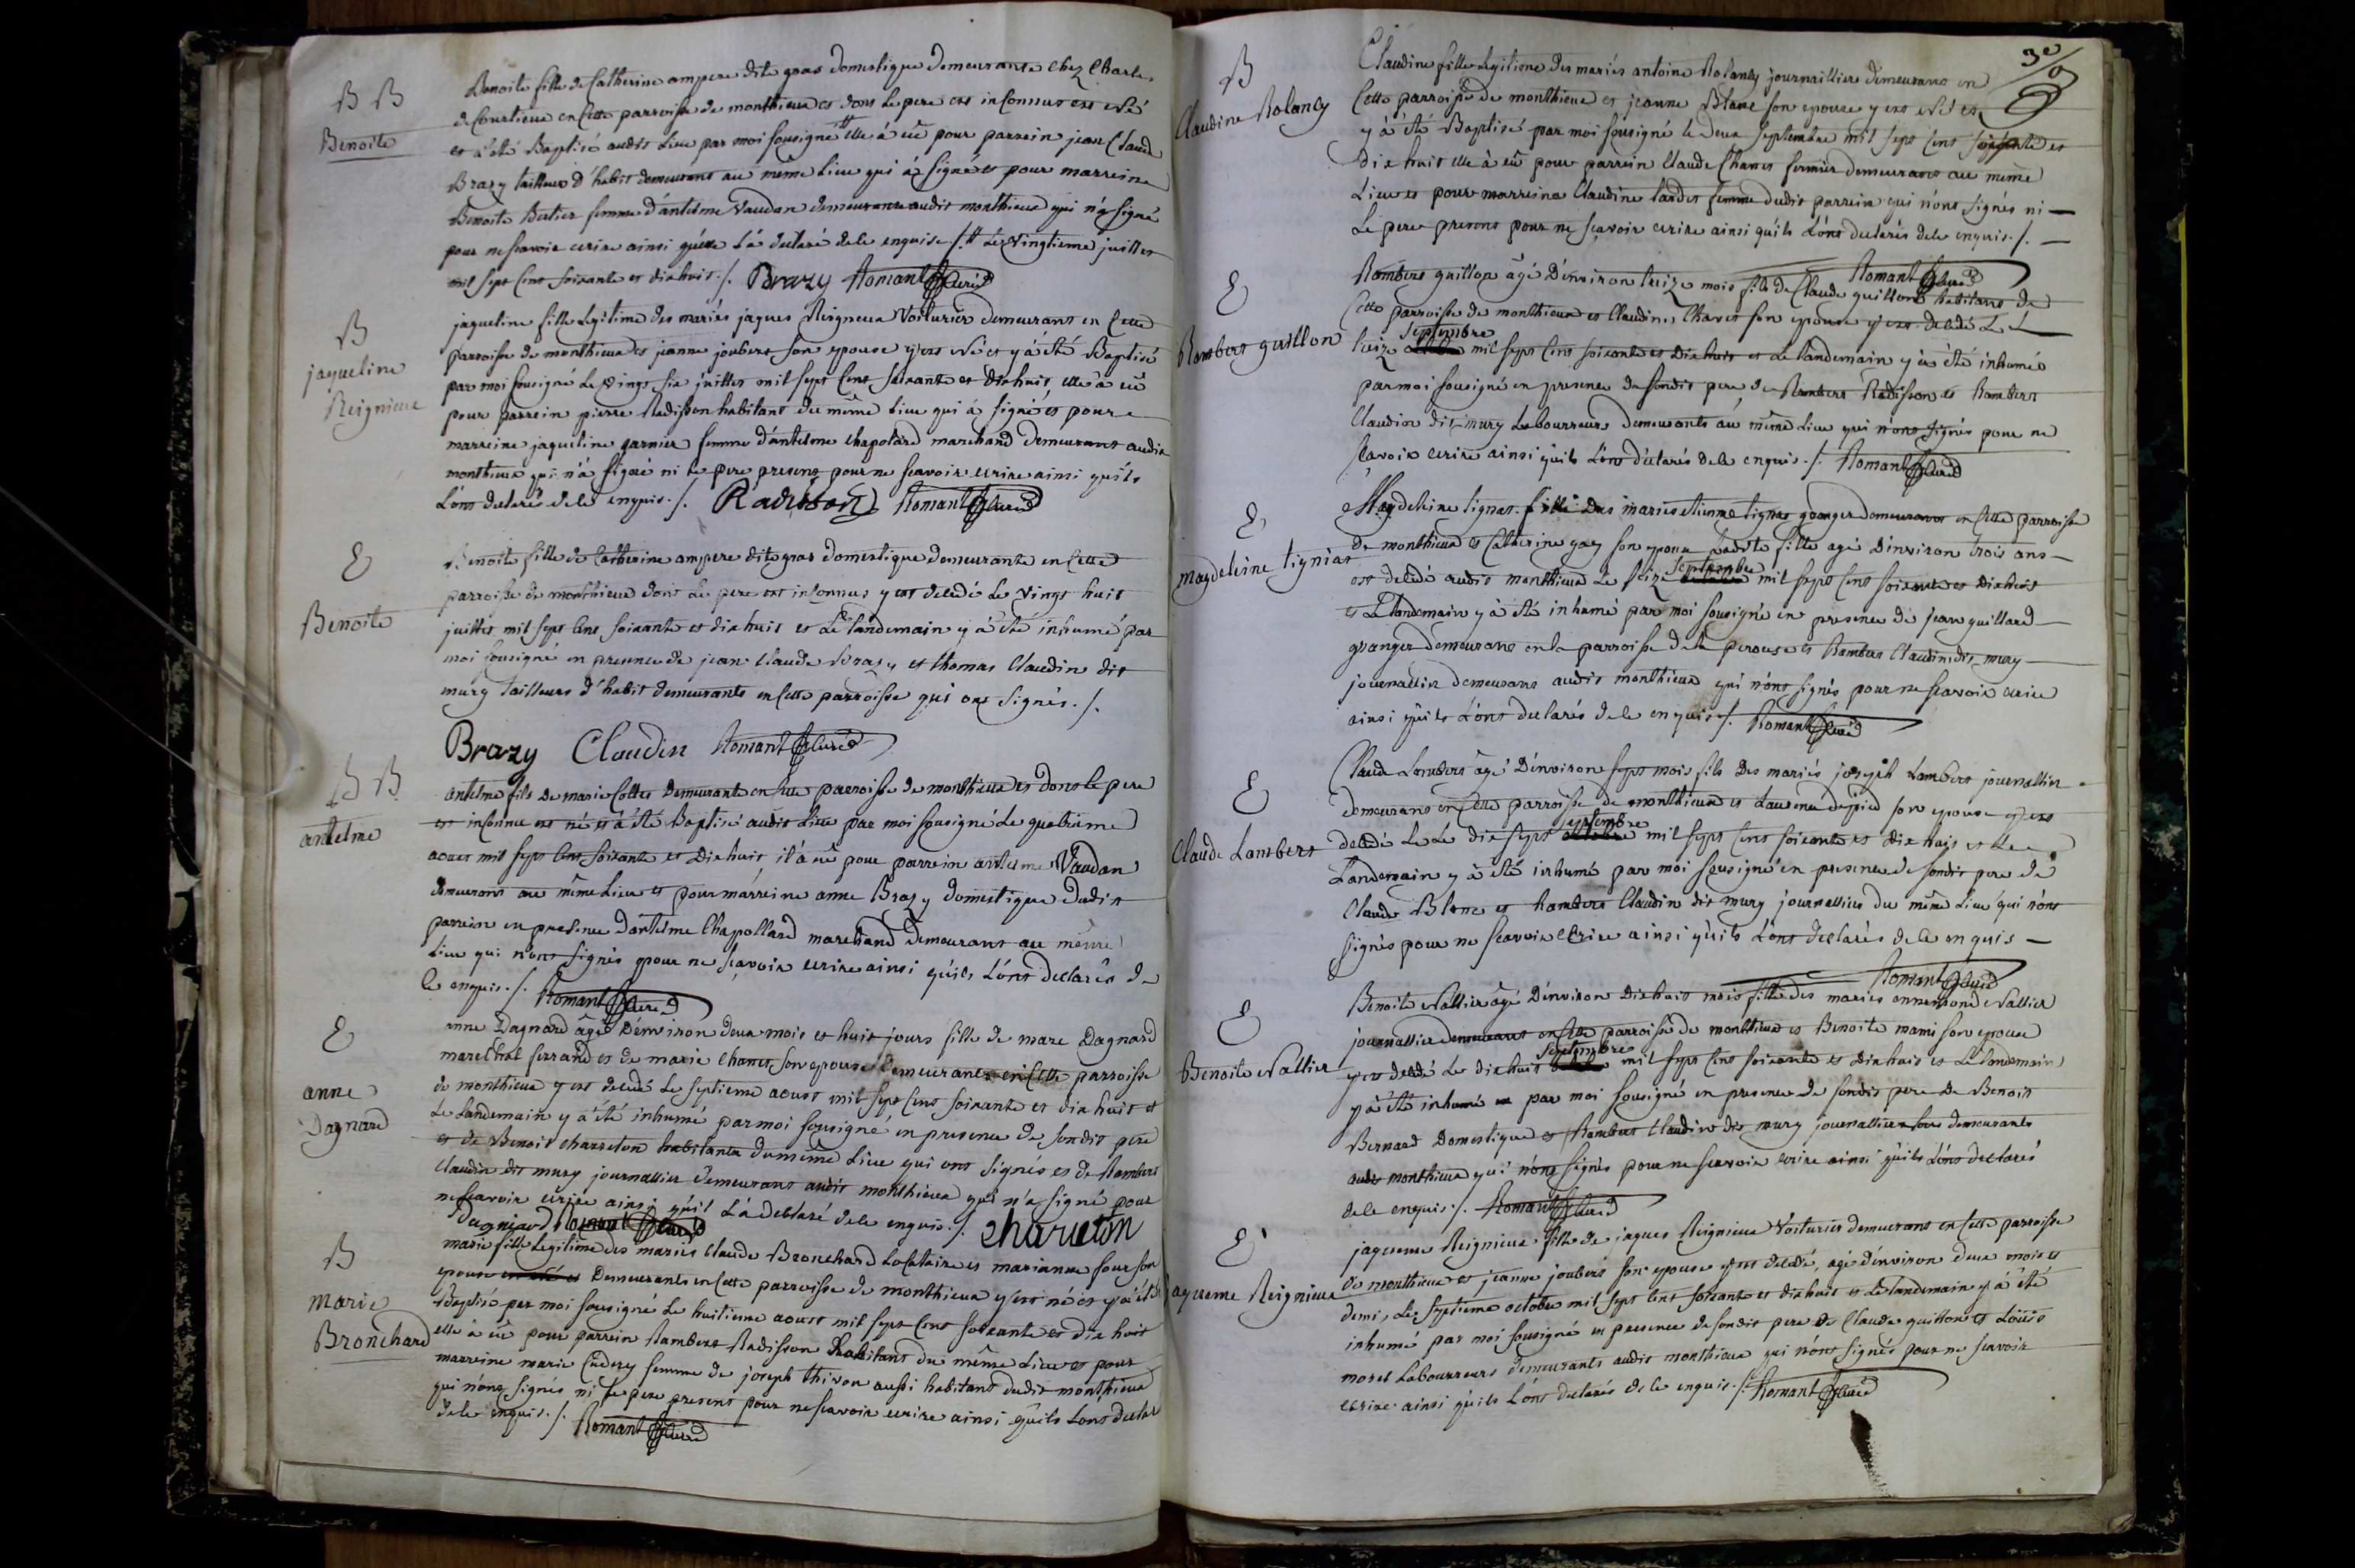 B B
Benoite
Benoite fille de Catherine ampere dite gras domestique demeurante chez Charles
de Courtieux en Cette parroisse de monthieux et dont le pere est inConnus est Né
et à été Baptisé audit Lieu par moi sousigné # elle à eû pour parrein jean Claude
Brazy tailleur d'habit demeurant au même Lieu qui à signé et pour marreine
Benoite Butier femme d'antelme Vaudan demeurante audit monthieux qui n'a signé
pour ne scavoir ecrire ainsi qu'elle L'a declaré de le enquise ./. # Le vingtieme juillet
mil sept Cent soixante et dixhuit ./. Brazy Romant Curé
B
jaqueline
Reignieux
jaqueline fille Legitime des mariés jaques Reignieux Voiturier demeurant en Cette
parroisse de monthieux et jeanne joubert son epouse y est Né et y à été Baptisé
par moi sousigné Le vingt six juillet mil sept Cent soixante et dixhuit elle à eû
pour parrein pierre Radisson habitant du même Lieu qui à signé et pour
marreine jaqueline garnier femme d'antelme Chapolard marchand demeurant audit
monthieux qui n'à signé ni le pere present pour ne scavoir ecrire ainsi qu'ils
L'ont declarés de le enquis ./. Radisson Romant Curé
E
Benoite
Benoite fille de Catherine ampere dite gras domestique demeurante en Cette
parroisse de monthieux dont Le pere est inConnus y est decedé Le vingt huit
juillet mil sept Cent soixante et dixhuit et Le landemain y à été inhumé par
moi sousigné en presence de jean Claude Brazy et thomas Claudin dit
mury tailleurs d'habit demeurants en Cette parroisse qui ont signés ./.
Brazy Claudin Romant Curé
B B
antelme
antelme fils de marie Collet demeurante en Cette parroisse de monthieux et dont le pere
est inConnu est né et à été Baptisé audit Lieu par moi sousigné Le quatrieme
aoust mil sept Cent soixante et Dixhuit il'à eû pour parrein antelme Vaudan
demeurant au même Lieu et pour marreine anne Brazy domestique dudit
parrein en presence d'antelme Chapollard marchand Demeurant au même
Lieu qui n'ont signés pour ne scavoir ecrire ainsi qu'ils L'ont declarés de
le enquis ./. Romant Curé
E
anne
Dagnard
anne Dagnard agé D'environ deux mois et huit jours fille de marc Dagnard
marechal ferrand et de marie Chanet son epouse Demeurants en Cette parroisse
de monthieux y est decedé Le septieme aoust mil sept Cent soixante et dixhuit et
Le Landemain y à été inhumé par moi sousigné en presence de sondit pere
et de Benoit charreton habitants du même Lieu qui ont signés et de Rambert
Claudin dit mury journallier demeurant audit monthieux qui n'a signé pour
ne scavoir ecrire ainsi qu'il L'à declaré de le enquis ./. Charreton
Dagniard Romant Curé
B
marie
Bronchard
marie fille Legitime des mariés Claude Bronchard Locataire et marianne four son
epouse Demeurants en Cette parroisse de monthieux y est né et y à été
Baptisé par moi sousigné Le huitieme aoust mil sept Cent soixante et dix huit
elle à eû pour parrein Rambert Radisson habitant du même Lieu et pour
marreine marie femme de joseph thivon aussi habitant dudit monthieux
qui n'ont signés ni le pere present pour ne scavoir ecrire ainsi qu'ils Lont declar
de le enquis ./. Romant Curé
3e
B
Claudine Rolandy
Claudine fille Legitime des mariés antoine Rolandy journaillier demeurant en
Cette parroisse de monthieux et jeanne Blanc son epouse y est Né et
y à été Baptisé par moi sousigné le deux septembre mil sept Cent soixante et
dix huit elle à eû pour parrein Claude Chanet fermier demeurant au même
Lieu et pour marreine Claudine tardit femme dudit parrein qui n'ont signés ni
Le pere present pour ne sçavoir ecrire ainsi qu'ils L'ont declarés de le enquis ./.
Romant Curé
E
Rambert guillon
Rambert guillon âgé D'environ treize mois fils de Claude guillon habitant de
Cette parroisse de monthieux et Claudine Chavet son epouse y est decedé Le
septembre
treize mil sept Cent soixante et Dixhuit et Le landemain y à été inhumé
par moi sousigné en presence de sondit pere de Rambert Radisson et Rambert
Claudin dit mury Labourreurs demeurants au même Lieu qui n'ont signés pour ne
scavoir ecrire ainsi qu'ils L'ont declarés de le enquis ./. Romant Curé
E
Magdeleine tigniat
Magdeleine tignat fille Des mariés etienne tignat granger demeurant en Cette parroisse
de monthieux et Catherine gay son epouse Ladite fille agé D'environ trois ans
septembre
est decedé audit monthieux Le seize mil sept Cent soixante et Dixhuit
et Le landemain y à été inhumé par moi sousigné en presence de jean guillard
granger demeurant en la parroisse de la perouse et Rambert Claudin dit mury
journallier demeurant audit monthieux qui n'ont signés pour ne scavoir ecrire
ainsi qu'ils L'ont declarés de le enquis ./. Romant Curé
E
Claude Lambert
Claude Lambert âgé D'environ sept mois fils Des mariés joseph Lambert journallier
demeurant en Cette parroisse de monthieux et Laurence depied son epouse y est
septembre
decedé Le Le dix sept mil sept Cent soixante et Dixhuit et Le
Landemain y à été inhumé par moi sousigné en presence de sondit pere de
Claude Blanc et Rambert Claudin dit mury journalliers du même Lieu qui n'ont
signés pour ne scavoir ecrire ainsi qu'ils L'ont declarés de le enquis
Romant Curé
E
Benoite Nallier
Benoite Nallier agé D'environ Dixhuit mois fille des mariés ennemond Nallier
journallier demeurant en Cette parroisse de monthieux et Benoite mani son epouse
septembre
y est decedé Le dixhuit mil sept Cent soixante et Dixhuit et Le landemain
y à été inhumé par moi sousigné en presence de sondit pere De Benoit
Bernard Domestique et Rambert Claudin dit mury journallier demeurants
audit monthieux qui n'ont signés pour ne scavoir ecrire ainsi qu'ils L'ont declarés
de le enquis ./. Romant Curé
E
jaqueme Reignieux
jaqueme Reignieux fille de jaques Reignieux Voiturier demeurant en Cette parroisse
de monthieux et jeanne joubert son epouse y est decedé, agé d'environ deux mois et
demi, Le septieme octobre mil sept Cent soixante et dixhuit et Le landemain y à été
inhumé par moi sousigné en presence de sondit pere de Claude guillon et Louis
morel Labourreurs demeurants audit monthieux qui n'ont signés pour ne scavoir
ecrire ainsi qu'ils L'ont declarés de le enquis ./. Romant Curé